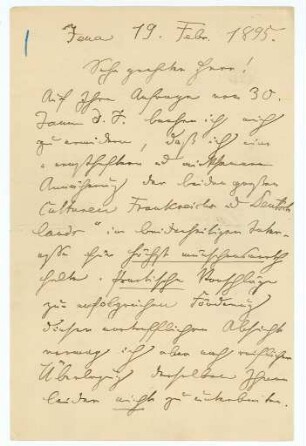 Jena 19. Febr. 1895.
Sehr geehrter Herr!
Auf Ihre Anfrage vom 30.
Januar d. J. beehre ich mich
zu erwidern, daß ich eine
"ernsthaftere und wirksamere
Annäherung der beiden großen
Culturen Frankreichs und Deutsch-
lands" im beiderseitigen Inter-
esse für höchst wünschenswerth
halte. Practische Vorschläge
zu erfolgreicher Förderung
dieser vortrefflichen Absicht
vermag ich aber nach reiflicher
Überlegung derselben Ihnen
leider nicht zu unterbreiten.